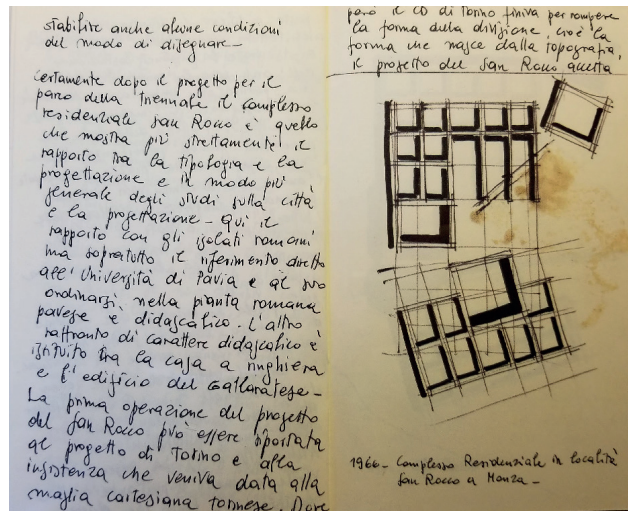 stabilire anche alcune condizioni
del modo di disegnare –
Certamente dopo il progetto per il
parco della Triennale il complesso
residenziale San Rocco è quello
che mostra più strettamente il
rapporto tra la tipologia e la
progettazione e in modo più
generale degli studi sulla città
e la progettazione – Qui il
rapporto con gli isolati romani
ma sopratutto il riferimento diretto
all'Università di Pavia e al suo
ordinarsi, nella pianta romana
pavese è didascalico. L'altro
raffronto di carattere didascalico è
istituito tra la casa a ringhiera
e l'edificio del Gallaratese –
La prima operazione del progetto
del San Rocco può essere riportata
al progetto di Torino e alla
insistenza che veniva data alla
maglia cartesiana torinese. Dove
però il CD di Torino finiva per rompere
la forma della divisione, cioè la
forma che nasce dalla topografia,
il progetto del San Rocco accetta
1966 – Complesso Residenziale in località
San Rocco a Monza –